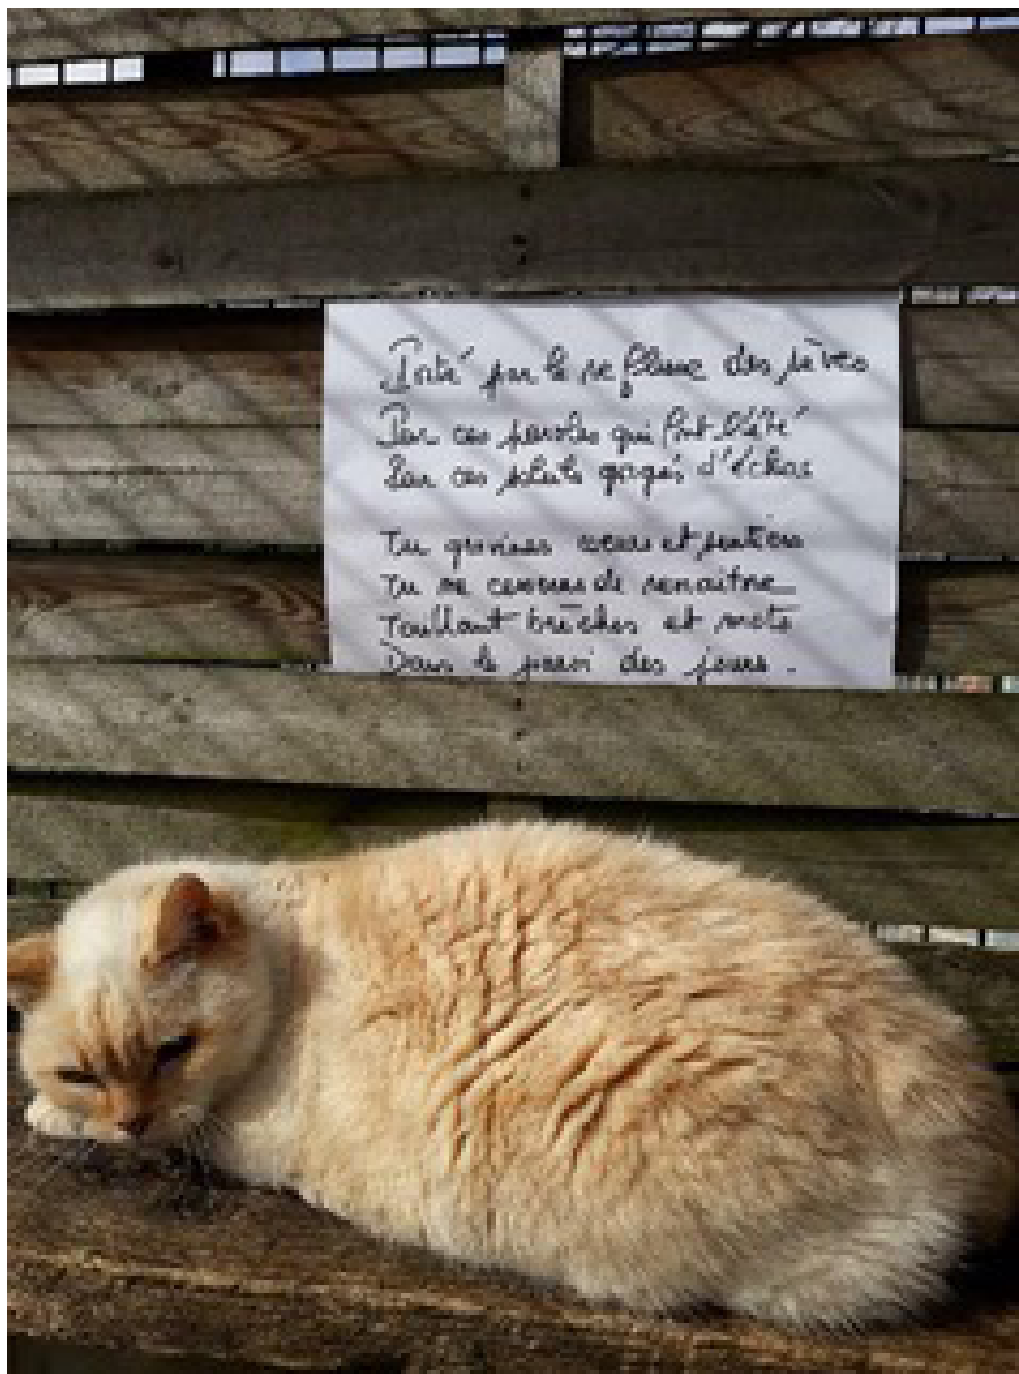 Porté par le se des rêves
Par ces paroles qui font l'été
Par ces gorgés d'échos
Tu graviras et sentiers
Tu ne cesseras de renaitre
Taillant brèches et mots
Dans la paroi des jours.